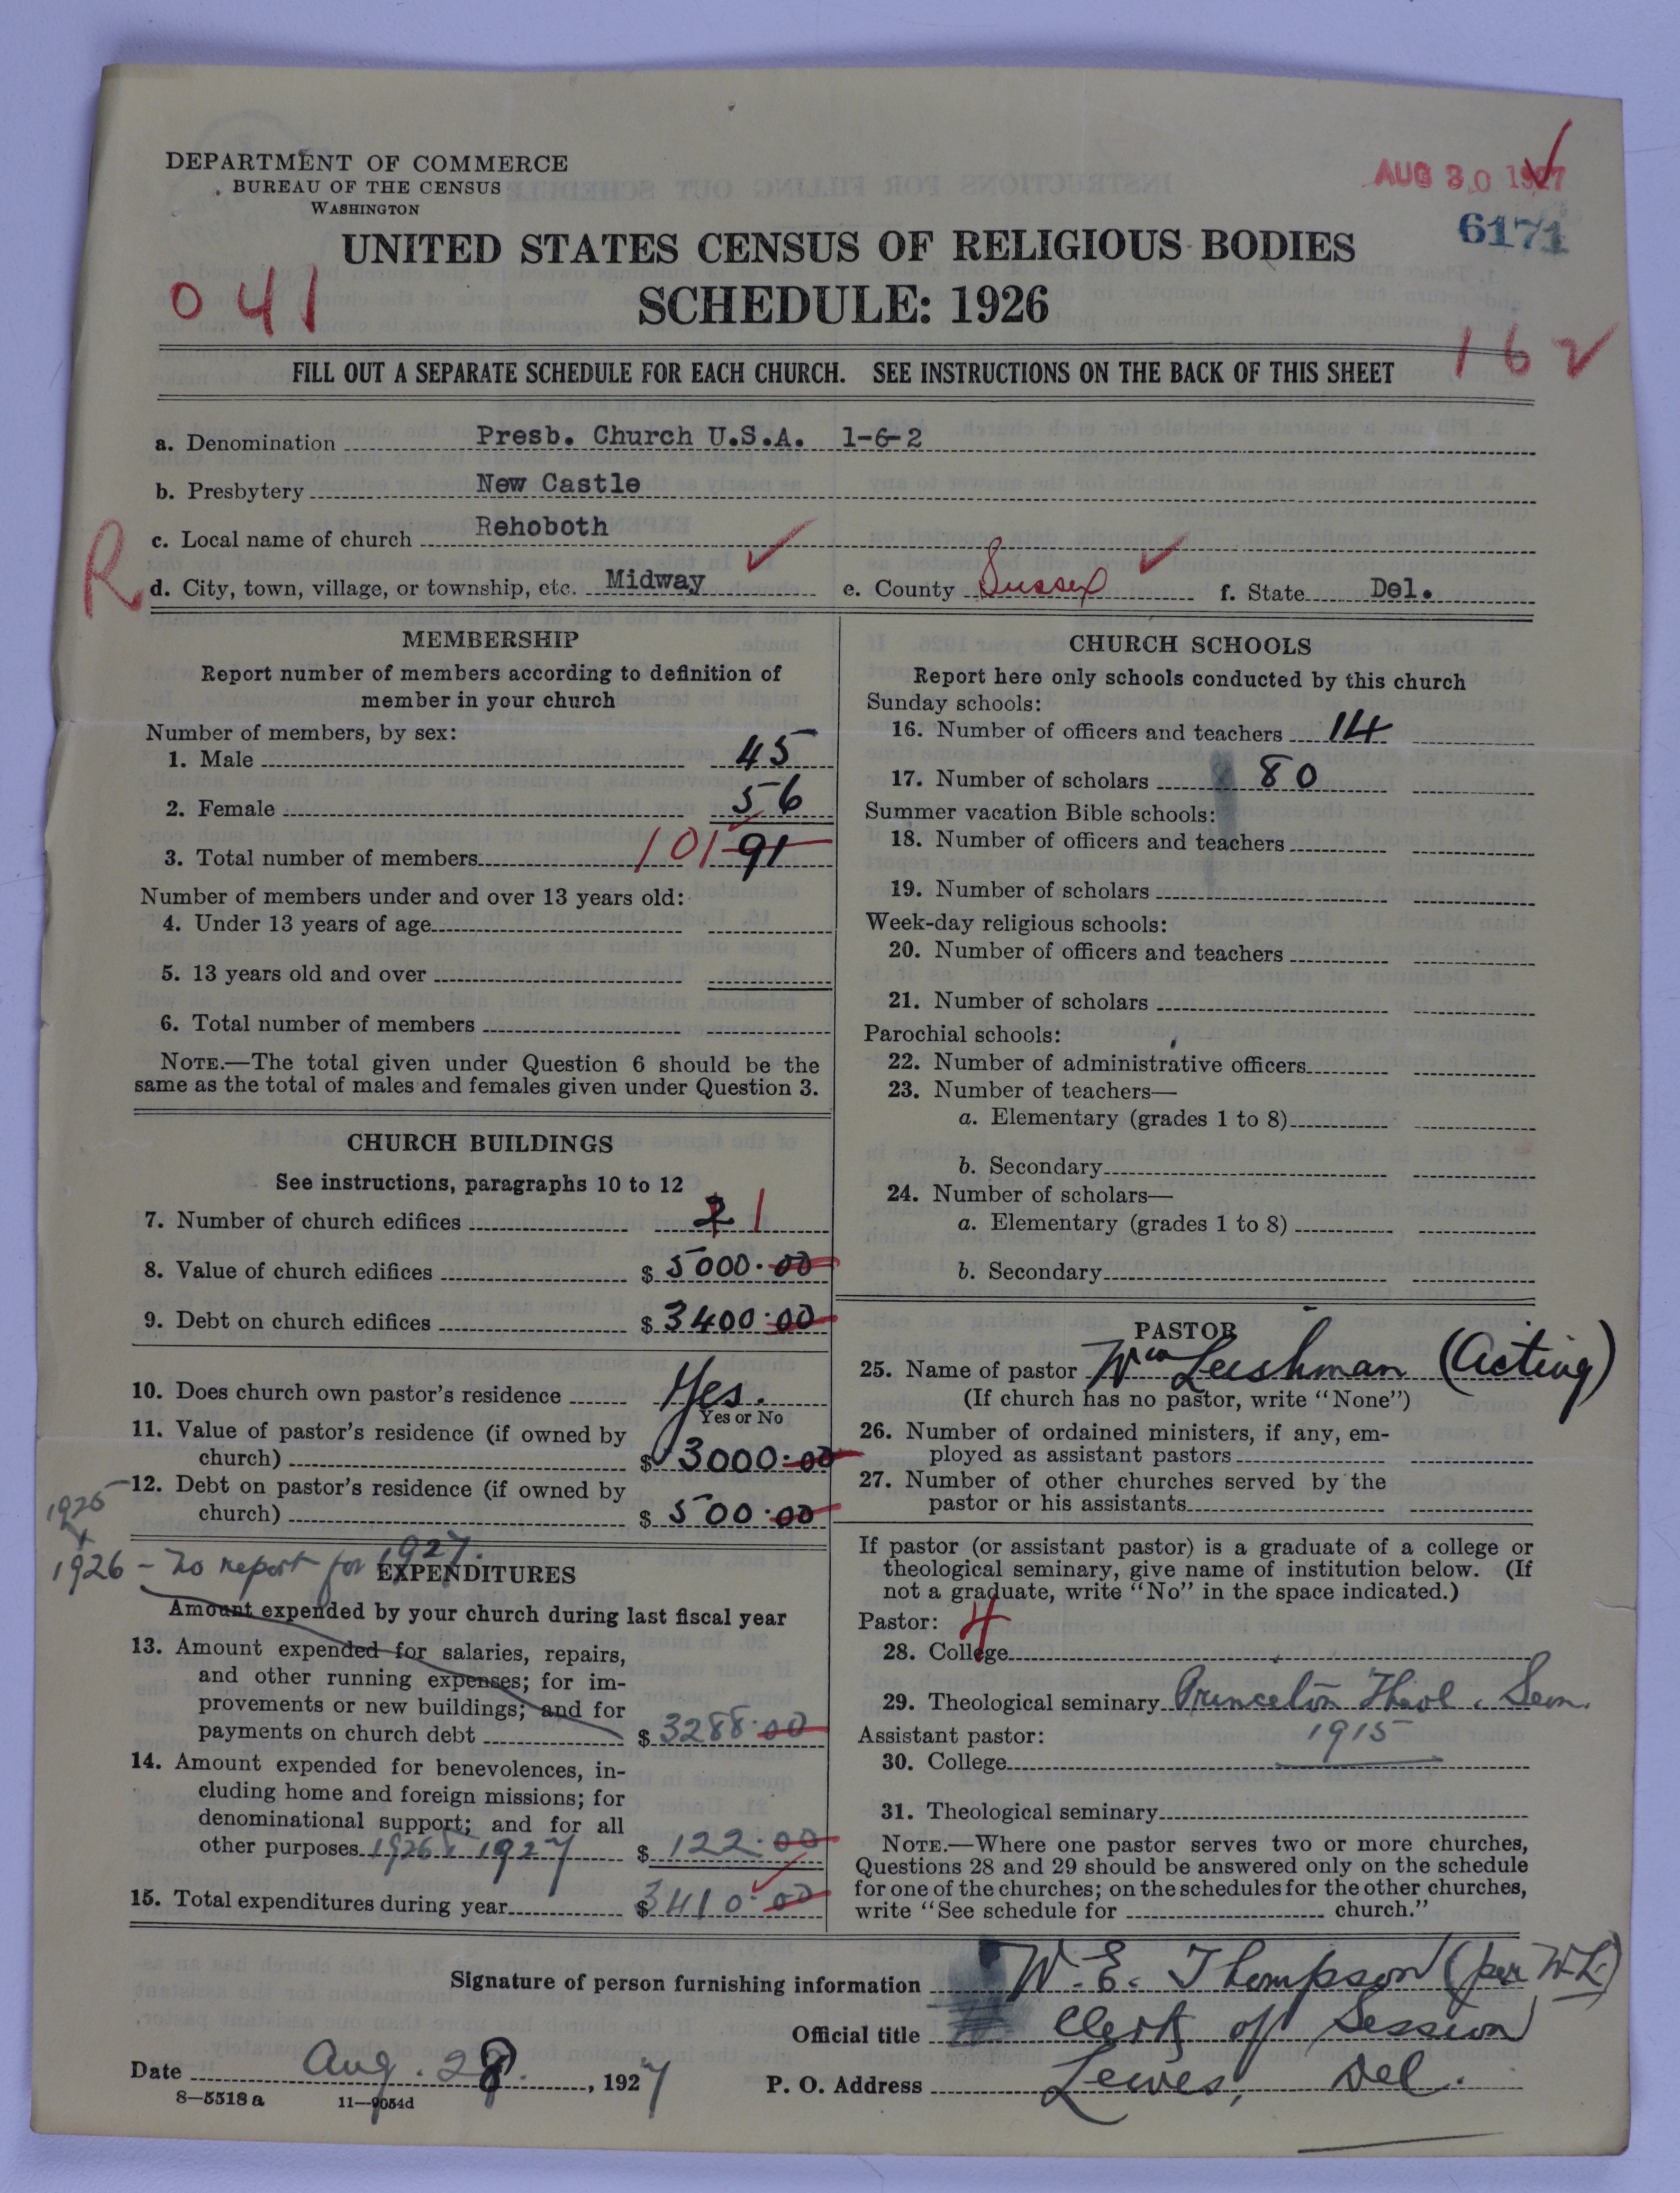 DEPARTMENT OF COMMERCE
BUREAU OF THE CENSUS
WASHINGTON
AUG 30 1927
6171
UNITED STATES CENSUS OF RELIGIOUS BODIES
041
SCHEDULE: 1926
162
FILL OUT A SEPARATE SCHEDULE FOR EACH CHURCH. SEE INSTRUCTIONS ON THE BACK OF THIS SHEET
a. Denomination Presb. Church U.S.A. 1-6-2
b. Presbytery New Castle
c. Local name of church Rehoboth
R
d. City, town, village, or township, etc. Midway e. County Sussex f. State Del.
MEMBERSHIP
Report number of members according to definition of
member in your church
Number of members, by sex:
1. Male 45
2. Female 56
3. Total number of members 101 91
Number of members under and over 13 years old:
4. Under 13 years of age
5. 13 years old and over
6. Total number of members
NOTE.—The total given under Question 6 should be the
same as the total of males and females given under Question 3.
CHURCH BUILDINGS
See instructions, paragraphs 10 to 12
7. Number of church edifices 2 1
8. Value of church edifices $ 5000.00
9. Debt on church edifices $ 3400.00
10. Does church own pastor's residence Yes.
Yes or No
11. Value of pastor's residence (if owned by
church) $ 3000.00
12. Debt on pastor's residence (if owned by
church) $ 500.00
1925
+
1926 - no report for 1927.
EXPENDITURES
Amount expended by your church during last fiscal year
13. Amount expended for salaries, repairs,
and other running expenses; for im-
provements or new buildings; and for
payments on church debt $ 3288.00
14. Amount expended for benevolences, in-
cluding home and foreign missions; for
denominational support; and for all
other purposes 1926 & 1927 $ 122.00
15. Total expenditures during year $ 3410.00
CHURCH SCHOOLS
Report here only schools conducted by this church
Sunday schools:
16. Number of officers and teachers 14
17. Number of scholars 80
Summer vacation Bible schools:
18. Number of officers and teachers
19. Number of scholars
Week-day religious schools:
20. Number of officers and teachers
21. Number of scholars
Parochial schools:
22. Number of administrative officers
23. Number of teachers—
a. Elementary (grades 1 to 8)
b. Secondary
24. Number of scholars—
a. Elementary (grades 1 to 8)
b. Secondary
PASTOR
25. Name of pastor Wm Leishman (Acting)
(If church has no pastor, write "None")
26. Number of ordained ministers, if any, em-
ployed as assistant pastors
27. Number of other churches served by the
pastor or his assistants
If pastor (or assistant pastor) is a graduate of a college or
theological seminary, give name of institution below. (If
not a graduate, write "No" in the space indicated.)
Pastor: 4
28. College
29. Theological seminary Princeton Theol. Sem.
Assistant pastor: 1915
30. College
31. Theological seminary
NOTE.—Where one pastor serves two or more churches,
Questions 28 and 29 should be answered only on the schedule
for one of the churches; on the schedules for the other churches,
write "See schedule for church."
Signature of person furnishing information W. E. Thompson (per W.L.)
Official title Clerk of Session
Date Aug. 28, 1927
P. O. Address Lewes, Del.
8—5518 a 11—9054d